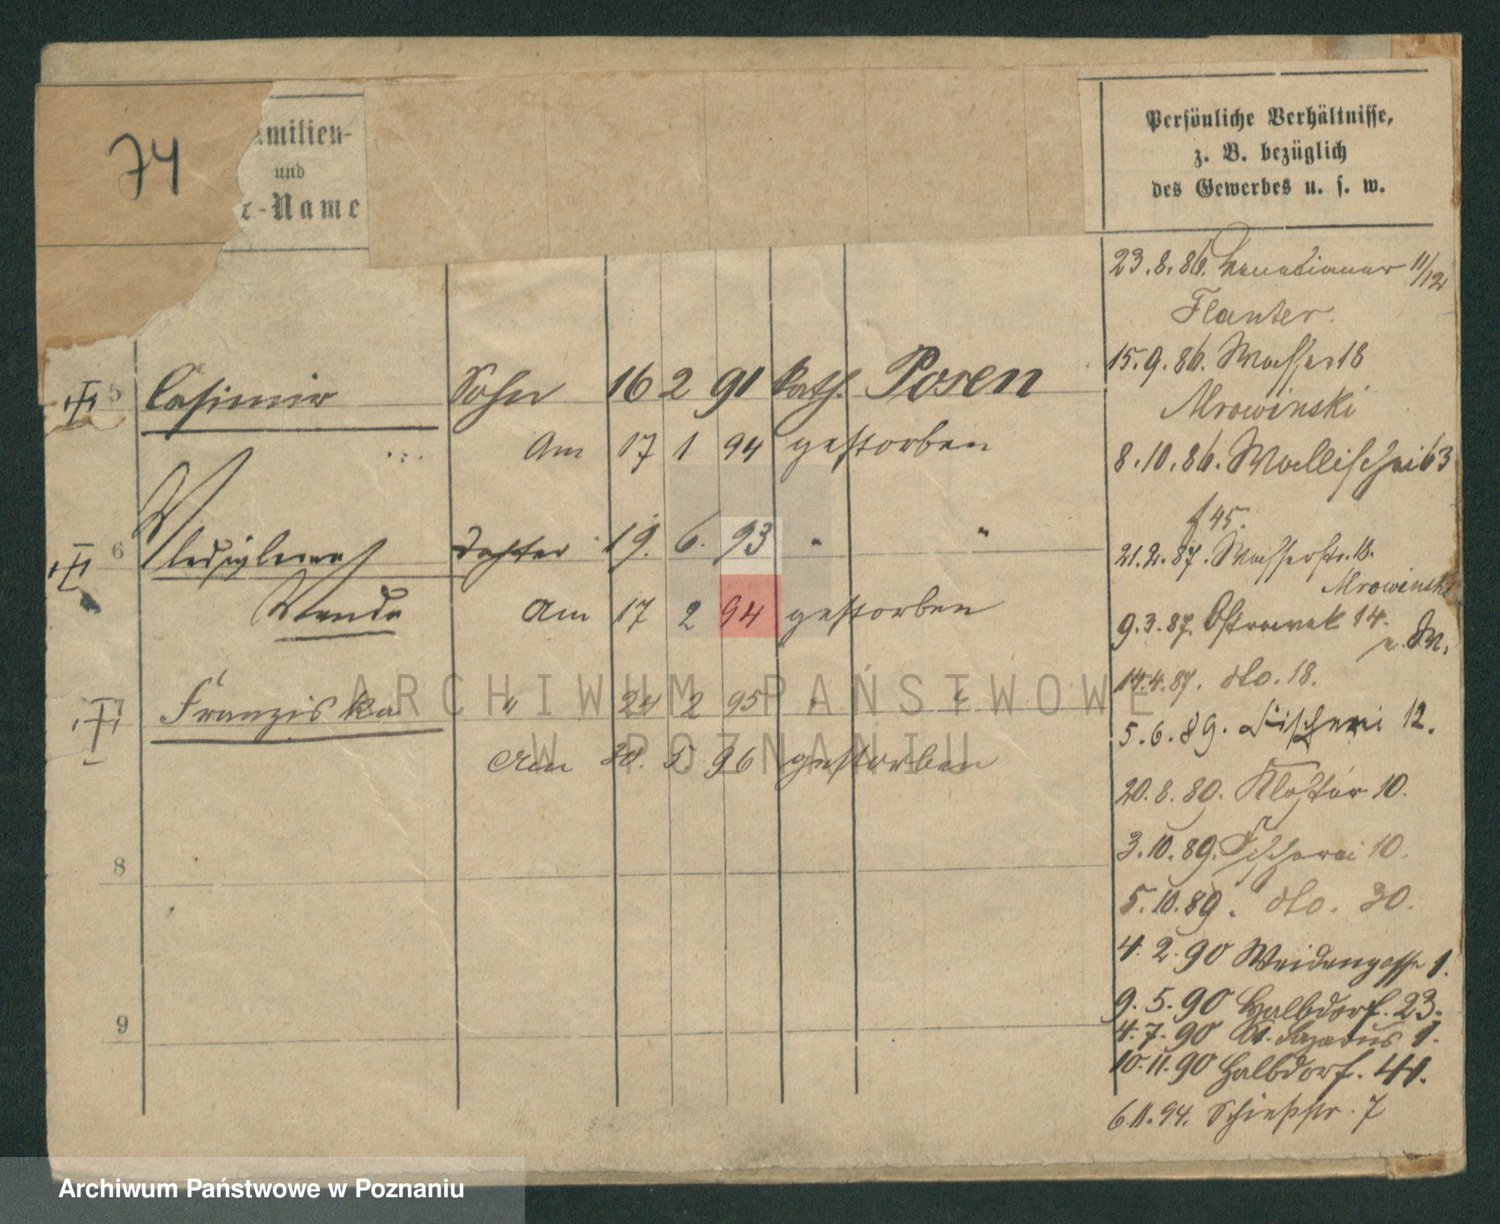 74
amilien-
und
-Name
Persönliche Verhältnisse,
z. B. bezüglich
des Gewerbes u. s. w.
23.8.86. Venetianer 11/12
Flanter.
15.9.86. Wasser 18
Mrowinski
8.10.86. Wallischei 63
f 45.
21.2.87. Wasserstr. 18.
Mrowinski
9.3.87. Ostrowek 14.
14.4.87. dto. 18.
5.6.89. Fischerei 12.
20.8.89. Kloster 10.
3.10.89. Fischerei 10.
5.10.89. dto. 30.
4.2.90 Weidengasse 1.
9.5.90 Halbdorf. 23.
4.7.90 St. Lazarus 1.
10.11.90 Halbdorf. 41.
94. Schießstr. 7
5 Casimir Sohn 16 2 91 kath. Posen
Am 17 1 94 gestorben
6 Tochter 19. 6. 93 " "
Wanda Am 17 2 94 gestorben
Franziska " 24 2 95 " "
Am 30. 5. 96 gestorben
8
9
ARCHIWUM PAŃSTWOWE
W POZNANIU
Archiwum Państwowe w Poznaniu